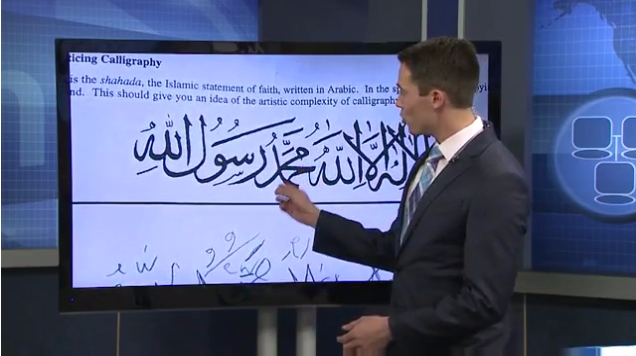 icing Calligraphy
is the shahada, the Islamic statement of faith, written in Arabic. In the
nd. This should give you an idea of the artistic complexity of calligraphy
اله الا الله محمد رسول الله